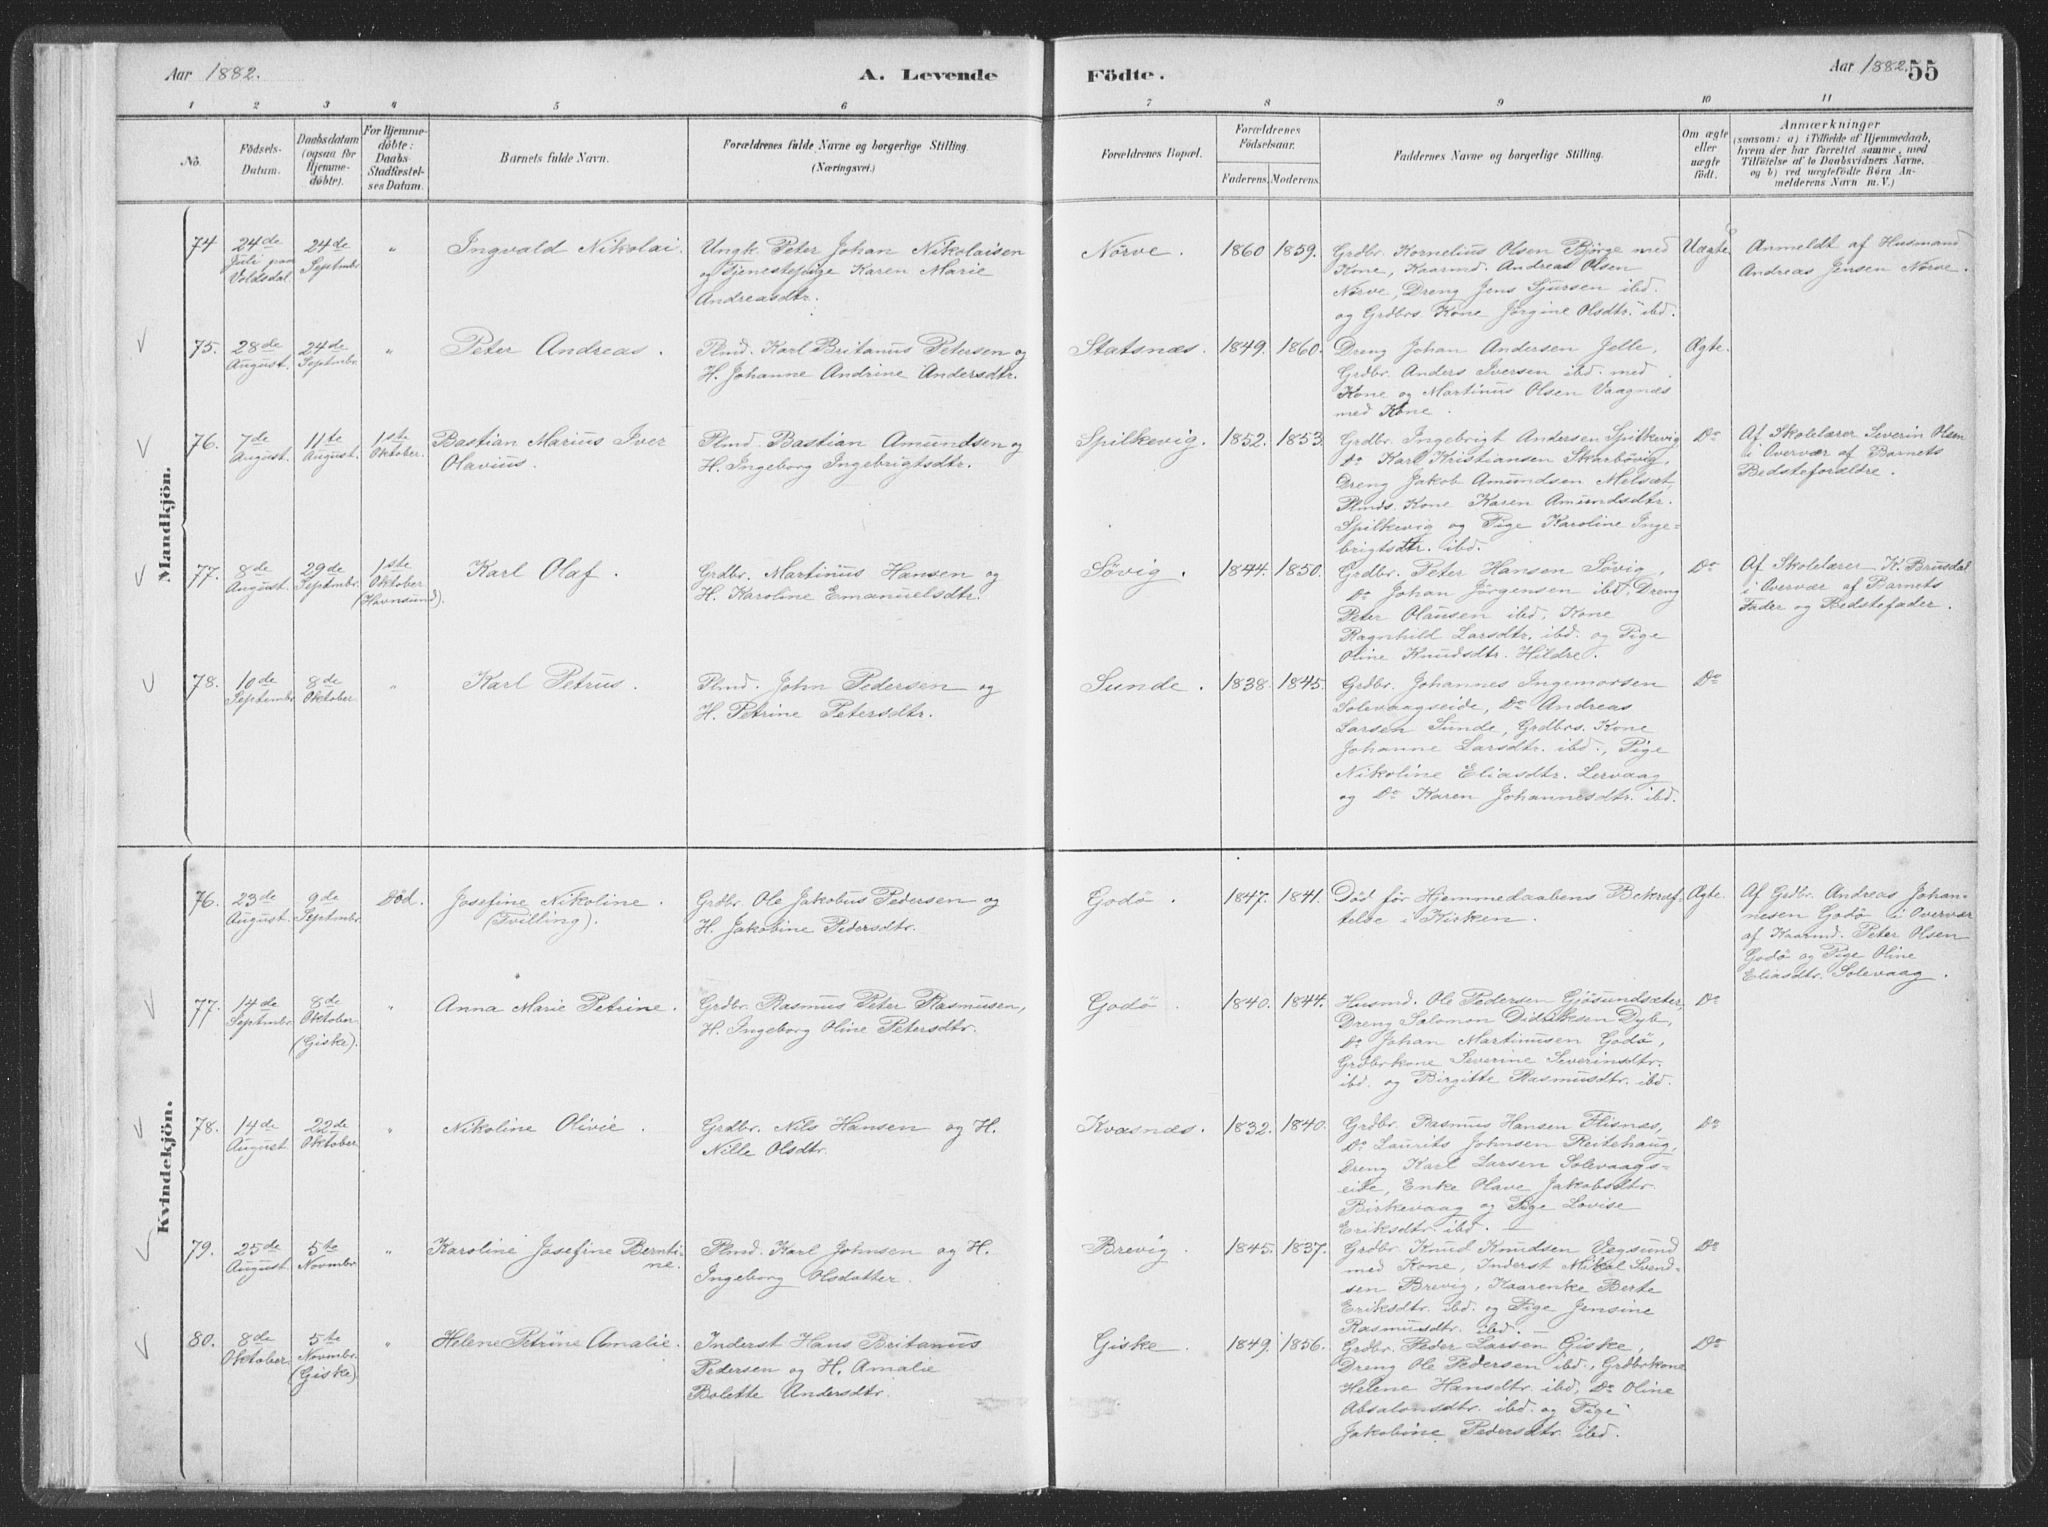 Aar 1882.
A. Levende
Födte.
Aar 1882.
55
1 2 3 4 5 6 7 8 9 10 11
No.
Födsels-
Datum.
Daabsdatum
(ogsaa for
Hjemme-
döbte).
For Hjemme-
döbte:
Daabs-
Stadfæstel-
ses Datum.
Barnets fulde Navn.
Forældrenes fulde Navne og borgerlige Stilling.
(Næringsvei.)
Forældrenes Bopæl.
Forældrenes
Födselsaar.
Faderens. Moderens.
Faddernes Navne og borgerlige Stilling.
Om ægte
eller
uægte
födt.
Anmærkninger
(saasom: a) i Tilfælde af Hjemmedaab,
hvem der har forrettet samme, med
Tilföielse af to Daabsvidners Navne,
og b) ved uægtefödte Börn An-
melderens Navn m. V.)
Mandkjön.
74
24de
Juli paa
Voldsdal.
24de
Septmbr.
"
Ingvald Nikolai.
Ungk. Peter Johan Nikolaisen
og Tjenestepige Karen Marie
Andreasdtr.
Nörve.
1860 1859.
Grdbr. Kornelius Olsen Bjørge med
Kone, Kaarmd. Andreas Olsen
Nörve, Dreng Jens Sjursen ibd.
og Grdbrs Kone Jørgine Olsdtr. ibd.
Uægte
Anmeldt af Husmand
Andreas Jensen Nörve.
75.
28de
August.
24de
Septmbr.
"
Peter Andreas.
Plmd. Karl Britanus Petersen og
H. Johanne Andrine Andersdtr.
Statsnæs.
1849. 1860.
Dreng Johan Andersen Jelle,
Grdbr. Anders Iversen ibd. med
Kone og Martinus Olsen Vaagnæs
med Kone.
Ægte.
76.
7de
August.
11te
August.
1ste
Oktober.
Bastian Marius Iver
Olavius.
Plmd. Bastian Amundsen og
H. Ingeborg Ingebrigtsdtr.
Spilkevig.
1852. 1853.
Grdbr. Ingebrigt Andersen Spilkevig
Do Karl Kristiansen Skarbövig,
Dreng Jakob Amundsen Melsæt,
Plmds. Kone Karen Amundsdtr.
Spilkevig og Pige Karoline Inge-
brigtsdtr. ibd.
Do
Af Skolelærer Severin Olsen
i Overvær af Barnets
Bedsteforældre.
77.
8de
August.
29de
Septmbr.
1ste
Oktober
(Havnsund).
Karl Olaf.
Grdbr. Martinus Hansen og
H. Karoline Emanuelsdtr.
Søvig.
1844. 1850.
Grdbr. Peter Hansen Søvig,
Do Johan Jørgensen ibd, Dreng
Peter Olausen ibd, Kone
Ragnhild Larsdtr. ibd. og Pige
Oline Knudsdtr. Hildre.
Do
Af Skolelærer K. Brusdal
i Overvær af Barnets
Fader og Bedstefader.
78.
10de
Septembr.
8de
Oktober
"
Karl Petrus.
Plmd. John Pedersen og
H. Petrine Petersdtr.
Sunde.
1838. 1845.
Grdbr. Johannes Ingemorsen
Solevaagseide, Do Andreas
Larsen Sunde, Grdbrs. Kone
Johanne Larsdtr. ibd., Pige
Nikoline Eliasdtr. Lervaag
og Do Karen Johannesdtr. ibd.
Do
Kvindekjön.
76.
23de
August.
9de
Septmbr.
Död.
Josefine Nikoline.
(Tvilling).
Grdbr. Ole Jakobus Pedersen og
H. Jakobine Pedersdtr.
Godö.
1847. 1841.
Död før Hjemmedaabens Bekræf-
telse i Kirken.
Ægte.
Af Grdbr. Andreas Johan-
nesen Godö i Overvær
af Kaarmd. Peter Olsen
Godö og Pige Oline
Eliasdtr. Solevaag.
77.
14de
Septmbr.
8de
Oktober
(Giske).
"
Anna Marie Petrine.
Grdbr. Rasmus Peter Rasmusen,
H. Ingeborg Oline Petersdtr.
Godö
1840. 1844.
Husmd. Ole Pedersen Gjösundsæter,
Dreng Salomon Didriksen Dyb,
Do Johan Martinusen Godö,
Grdbrkone Severine Severinsdtr.
ibd. og Birgitte Rasmusdtr. ibd.
Do
78.
14de
August.
22de
Oktober
"
Nikoline Olivie.
Grdbr. Nils Hansen og H.
Nille Olsdtr.
Kvasnæs.
1832. 1840.
Grdbr. Rasmus Hansen Flisnæs,
Do Laurits Johnsen Reitehaug,
Dreng Karl Larsen Solevaags-
eide, Enke Olave Jakobsdtr.
Birkevaag og Pige Lovise
Eriksdtr. ibd.
Do
79.
25de
August.
5te
Novmbr.
"
Karoline Josefine Bernti-
ne.
Plmd. Karl Johnsen og H.
Ingeborg Olsdatter.
Brevig.
1845. 1837.
Grdbr. Knud Knudsen Vegsund
med Kone, Inderst Mikal Svend-
sen Brevig, Kaarenke Berte
Eriksdtr. ibd. og Pige Jensine
Rasmusdtr. ibd.
Do
80.
8de
Oktober.
5te
Novmbr.
(Giske)
"
Helene Petrine Amalie.
Inderst Hans Britanius
Pedersen og H. Amalie
Bolette Andersdtr.
Giske.
1849. 1856.
Grdbr. Peder Larsen Giske,
Dreng Ole Pedersen ibd., Grdbrkone
Helene Hansdtr. ibd, Do Oline
Absalonsdtr. ibd. og Pige
Jakobine Pedersdtr. ibd.
Do